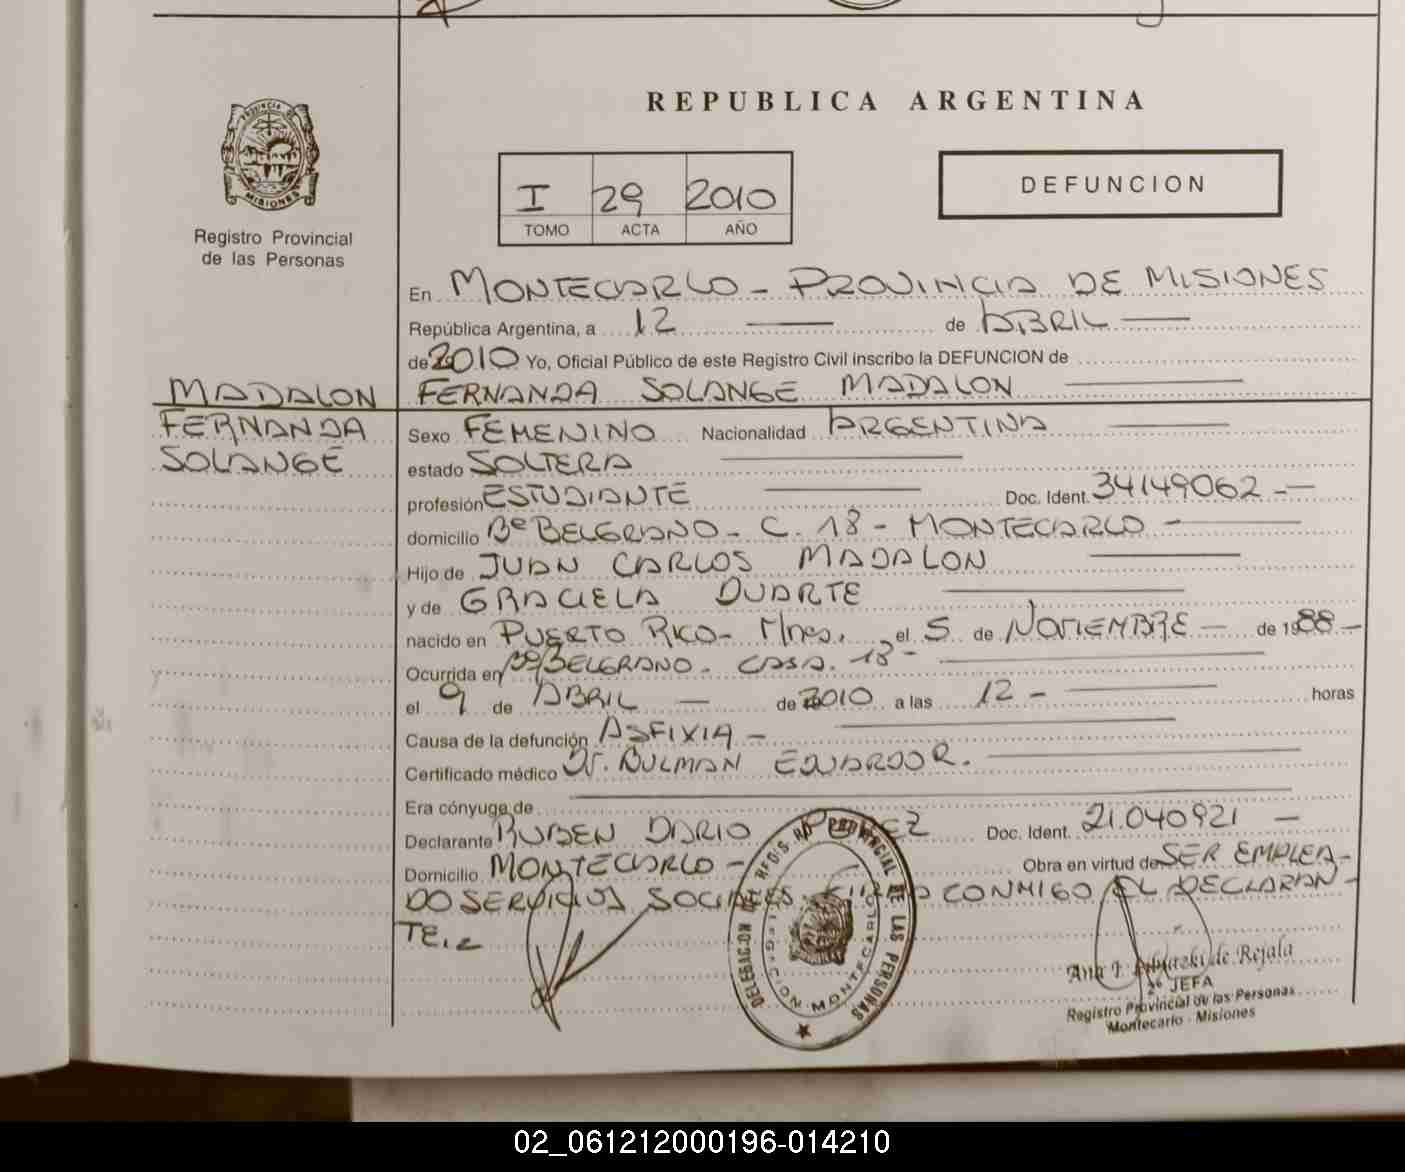 PROVINCIA DE
MISIONES
Registro Provincial
de las Personas
REPUBLICA ARGENTINA
I 29 2010
TOMO ACTA AÑO
DEFUNCION
En MONTECARLO - PROVINCIA DE MISIONES
República Argentina, a 12 de ABRIL
de 2010 Yo, Oficial Público de este Registro Civil inscribo la DEFUNCION de
FERNANDA SOLANGE MADALON
MADALON
FERNANDA
SOLANGE
Sexo FEMENINO Nacionalidad ARGENTINA
estado SOLTERA
profesión ESTUDIANTE Doc. Ident. 34149062 -
domicilio Bº BELGRANO - C. 18 - MONTECARLO -
Hijo de JUAN CARLOS MADALON
y de GRACIELA DUARTE
nacido en PUERTO RICO - Mnes. el 5 de NOVIEMBRE - de 1988 -
Ocurrida en Bº BELGRANO - CASA. 18 -
el 9 de ABRIL - de 2010 a las 12 - horas
Causa de la defunción ASFIXIA -
Certificado médico Dr. BULMAN EDUARDO R.
Era cónyuge de
Declarante RUBEN DARIO Doc. Ident. 21.040921 -
Domicilio MONTECARLO - Obra en virtud de SER EMPLEA-
DO SERVICIOS SOCIALES CONMIGO EL DECLARAN-
TE.
DELEGACION DEL REGISTRO PROVINCIAL DE LAS PERSONAS
DELEGACION MONTECARLO
Ana de Rejala
2º JEFA
Registro Provincial de las Personas
Montecarlo - Misiones
02_061212000196-014210